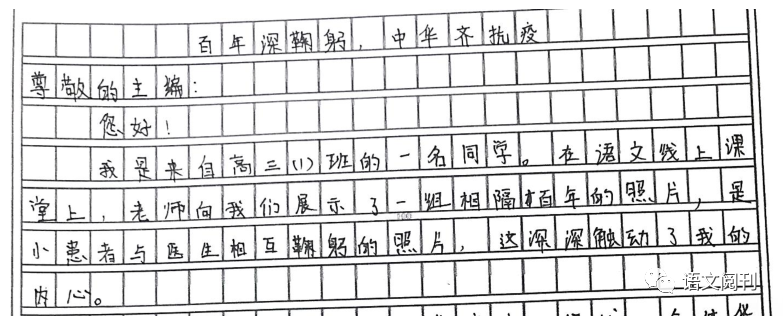 百年深鞠躬，中华齐抗疫
尊敬的主编：
您好！
我是来自高三(1)班的一名同学。在语文线上课
堂上，老师向我们展示了一组相隔百年的照片，是
小患者与医生相互鞠躬的照片，这深深触动了我的
内心。
语文阅刊